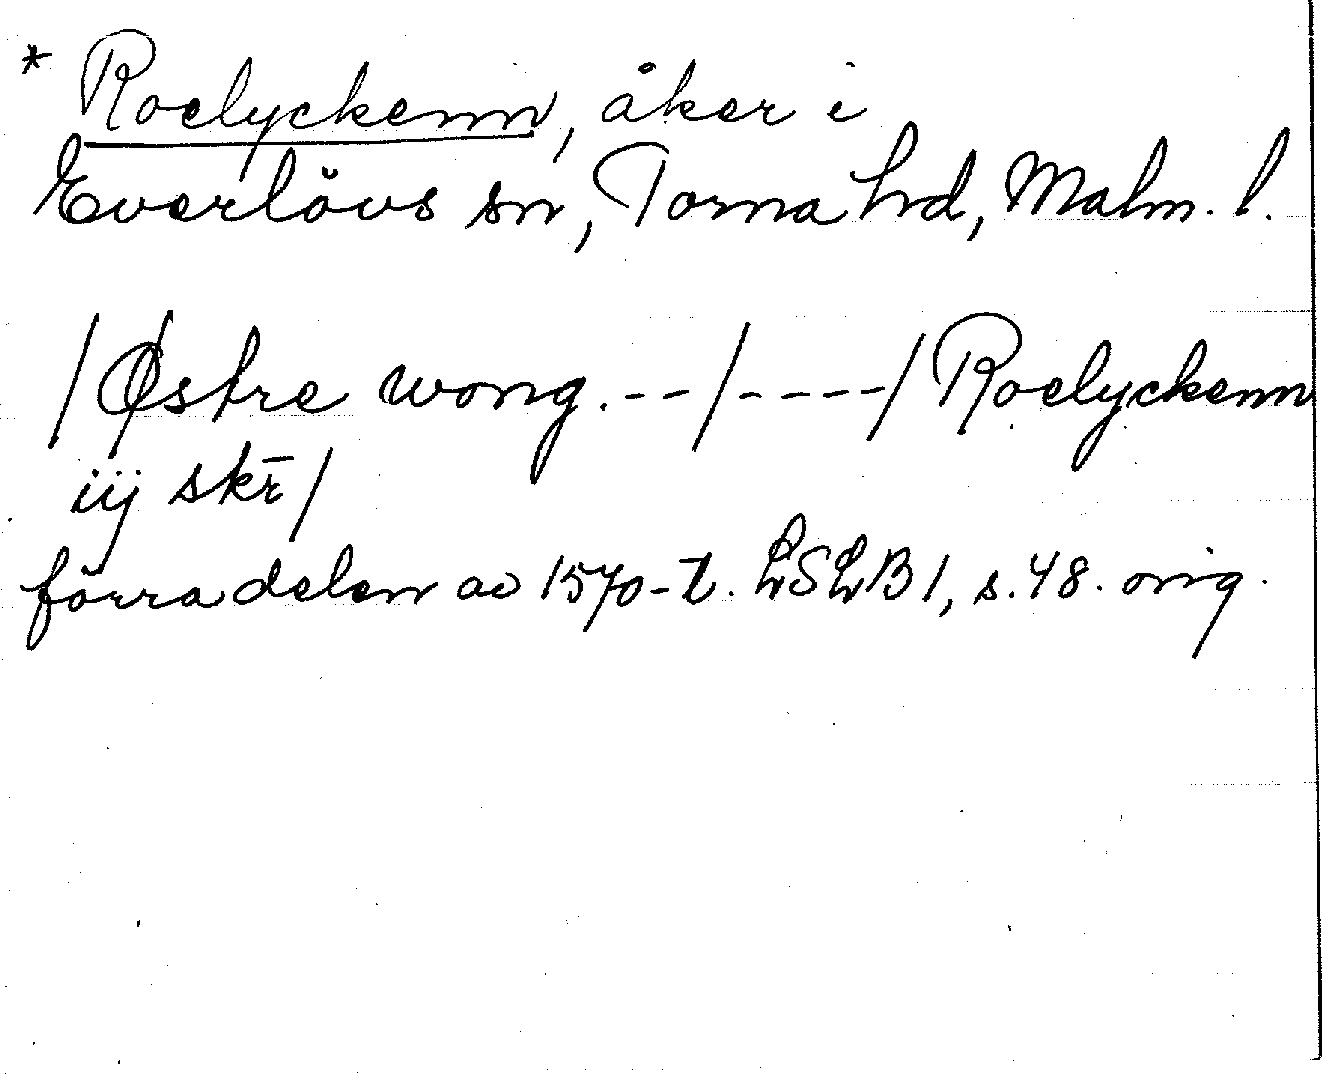 * Roelyckenn, åker i
Everlövs sn, Torna hd, Malm. l.
/Østre wong.--/----/Roelyckenn
iij skr̄/
förra delen av 1570-t. LSLB 1, s. 48. orig.